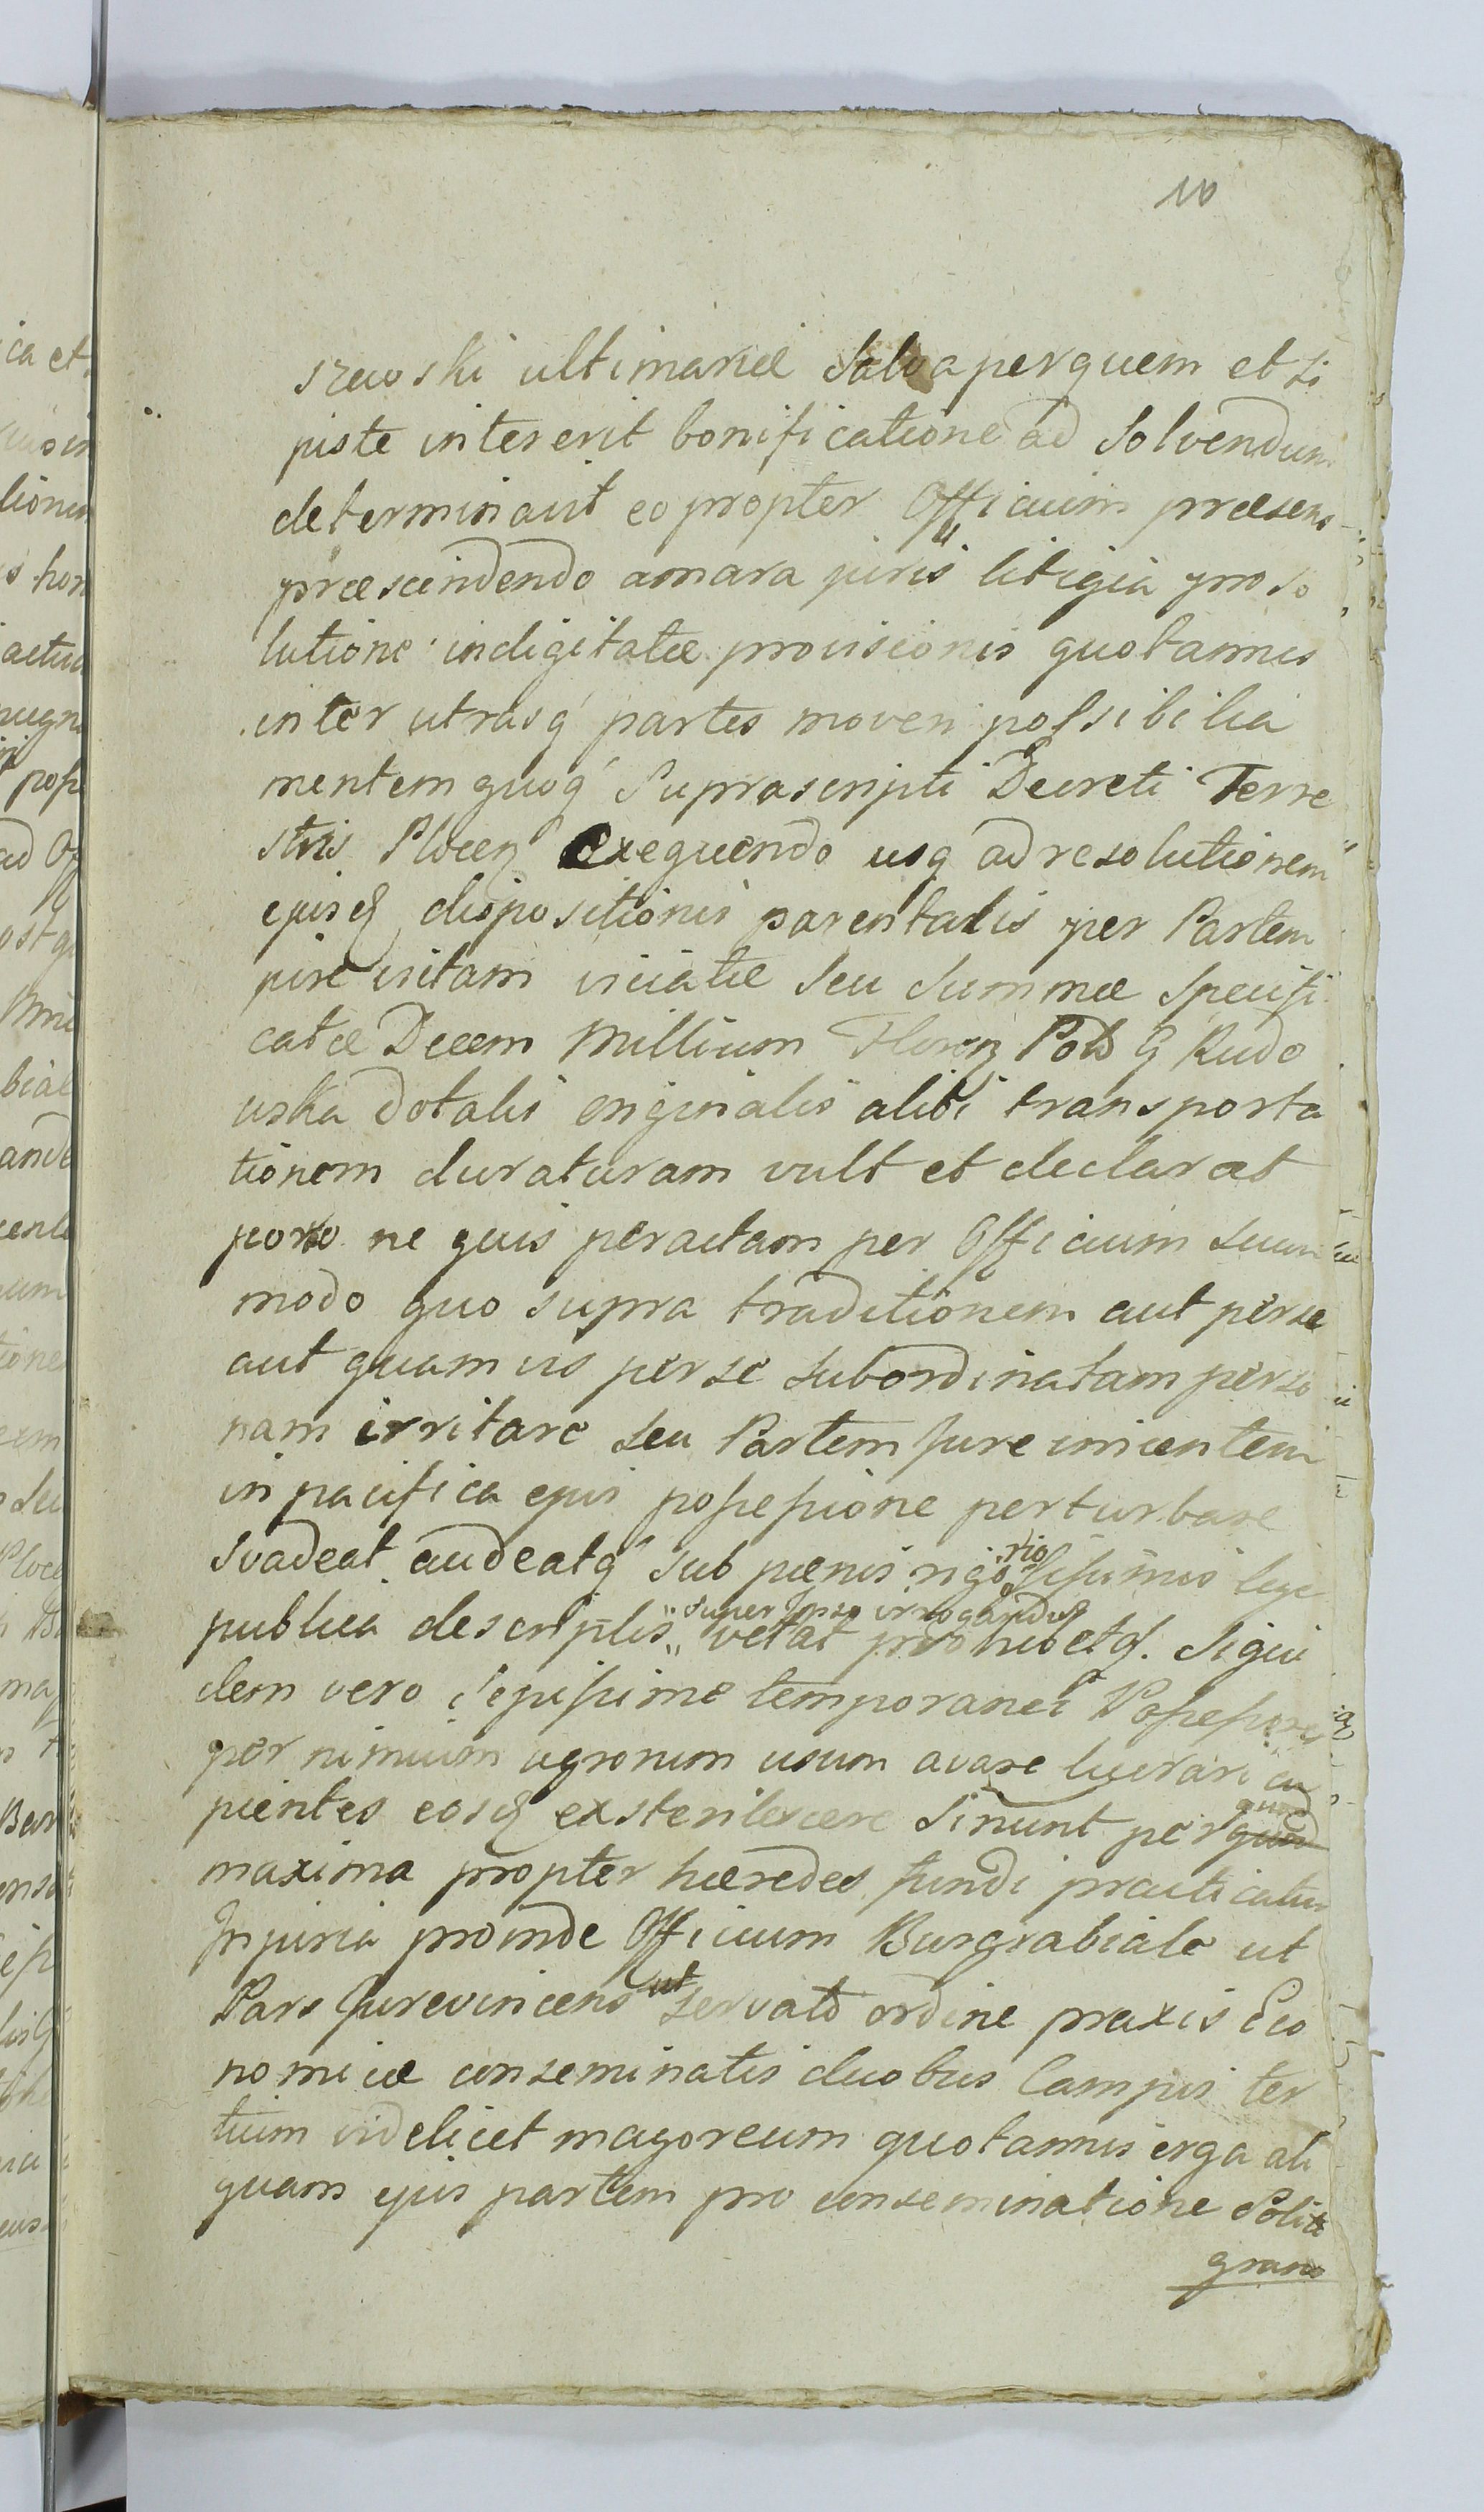 10
szewski ultimariae Salva perquem et si
juste intererit bonificatione ad Solvendum
determinavit eo propter Officium praesens
praescindendo amara juris litigia pro so
lutione indigitatae provisionis quotannis
inter utrasq partes moveri possibilia
mentem quoq Suprascripti Decreti Terre
stris Plocen exequendo usq ad resolutionem
ejusd dispositionis parentalis per Partem
jure victam viciatae seu Summae Specifi
catae Decem Millium Floren Pol G Rudo
wska dotalis originalis alibi transporta
tionem duraturam vult et declarat
porro ne quis peractam per Officium suum
modo quo supra traditionem aut per se
aut quamvis per se subordinatam perso
nam irritare seu Partem Jure vincentem
in pacifica ejus possessione perturbare
Svadeat audeatq sub paenis rigorosissimis lege
publica descriptis super Ipso irrogandis vetat prohibetq. Siqui
dem vero saepissime temporanei Possessores
per nimium agrorum usum avare lucrari cu
pientes eosd exsterilescere Sinunt per quod
maxima propter haeredes fundi practicatur
Injuria proinde Officium Burgrabiale ut
Pars Jurevincens ut servato ordine praxis Eco
nomicae conseminatis duobus Campis ter
tium videlicet magoreum quotannis erga ali
quam ejus partem pro conseminatione Solita
grano